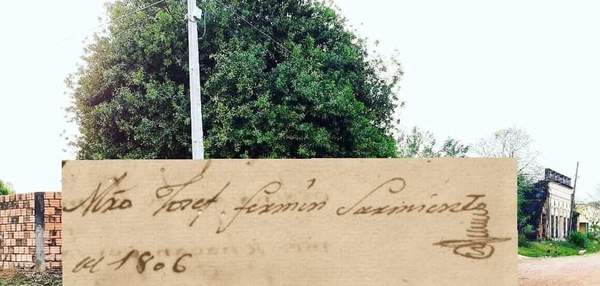 Mro Josef fermin Sarmiento
1806